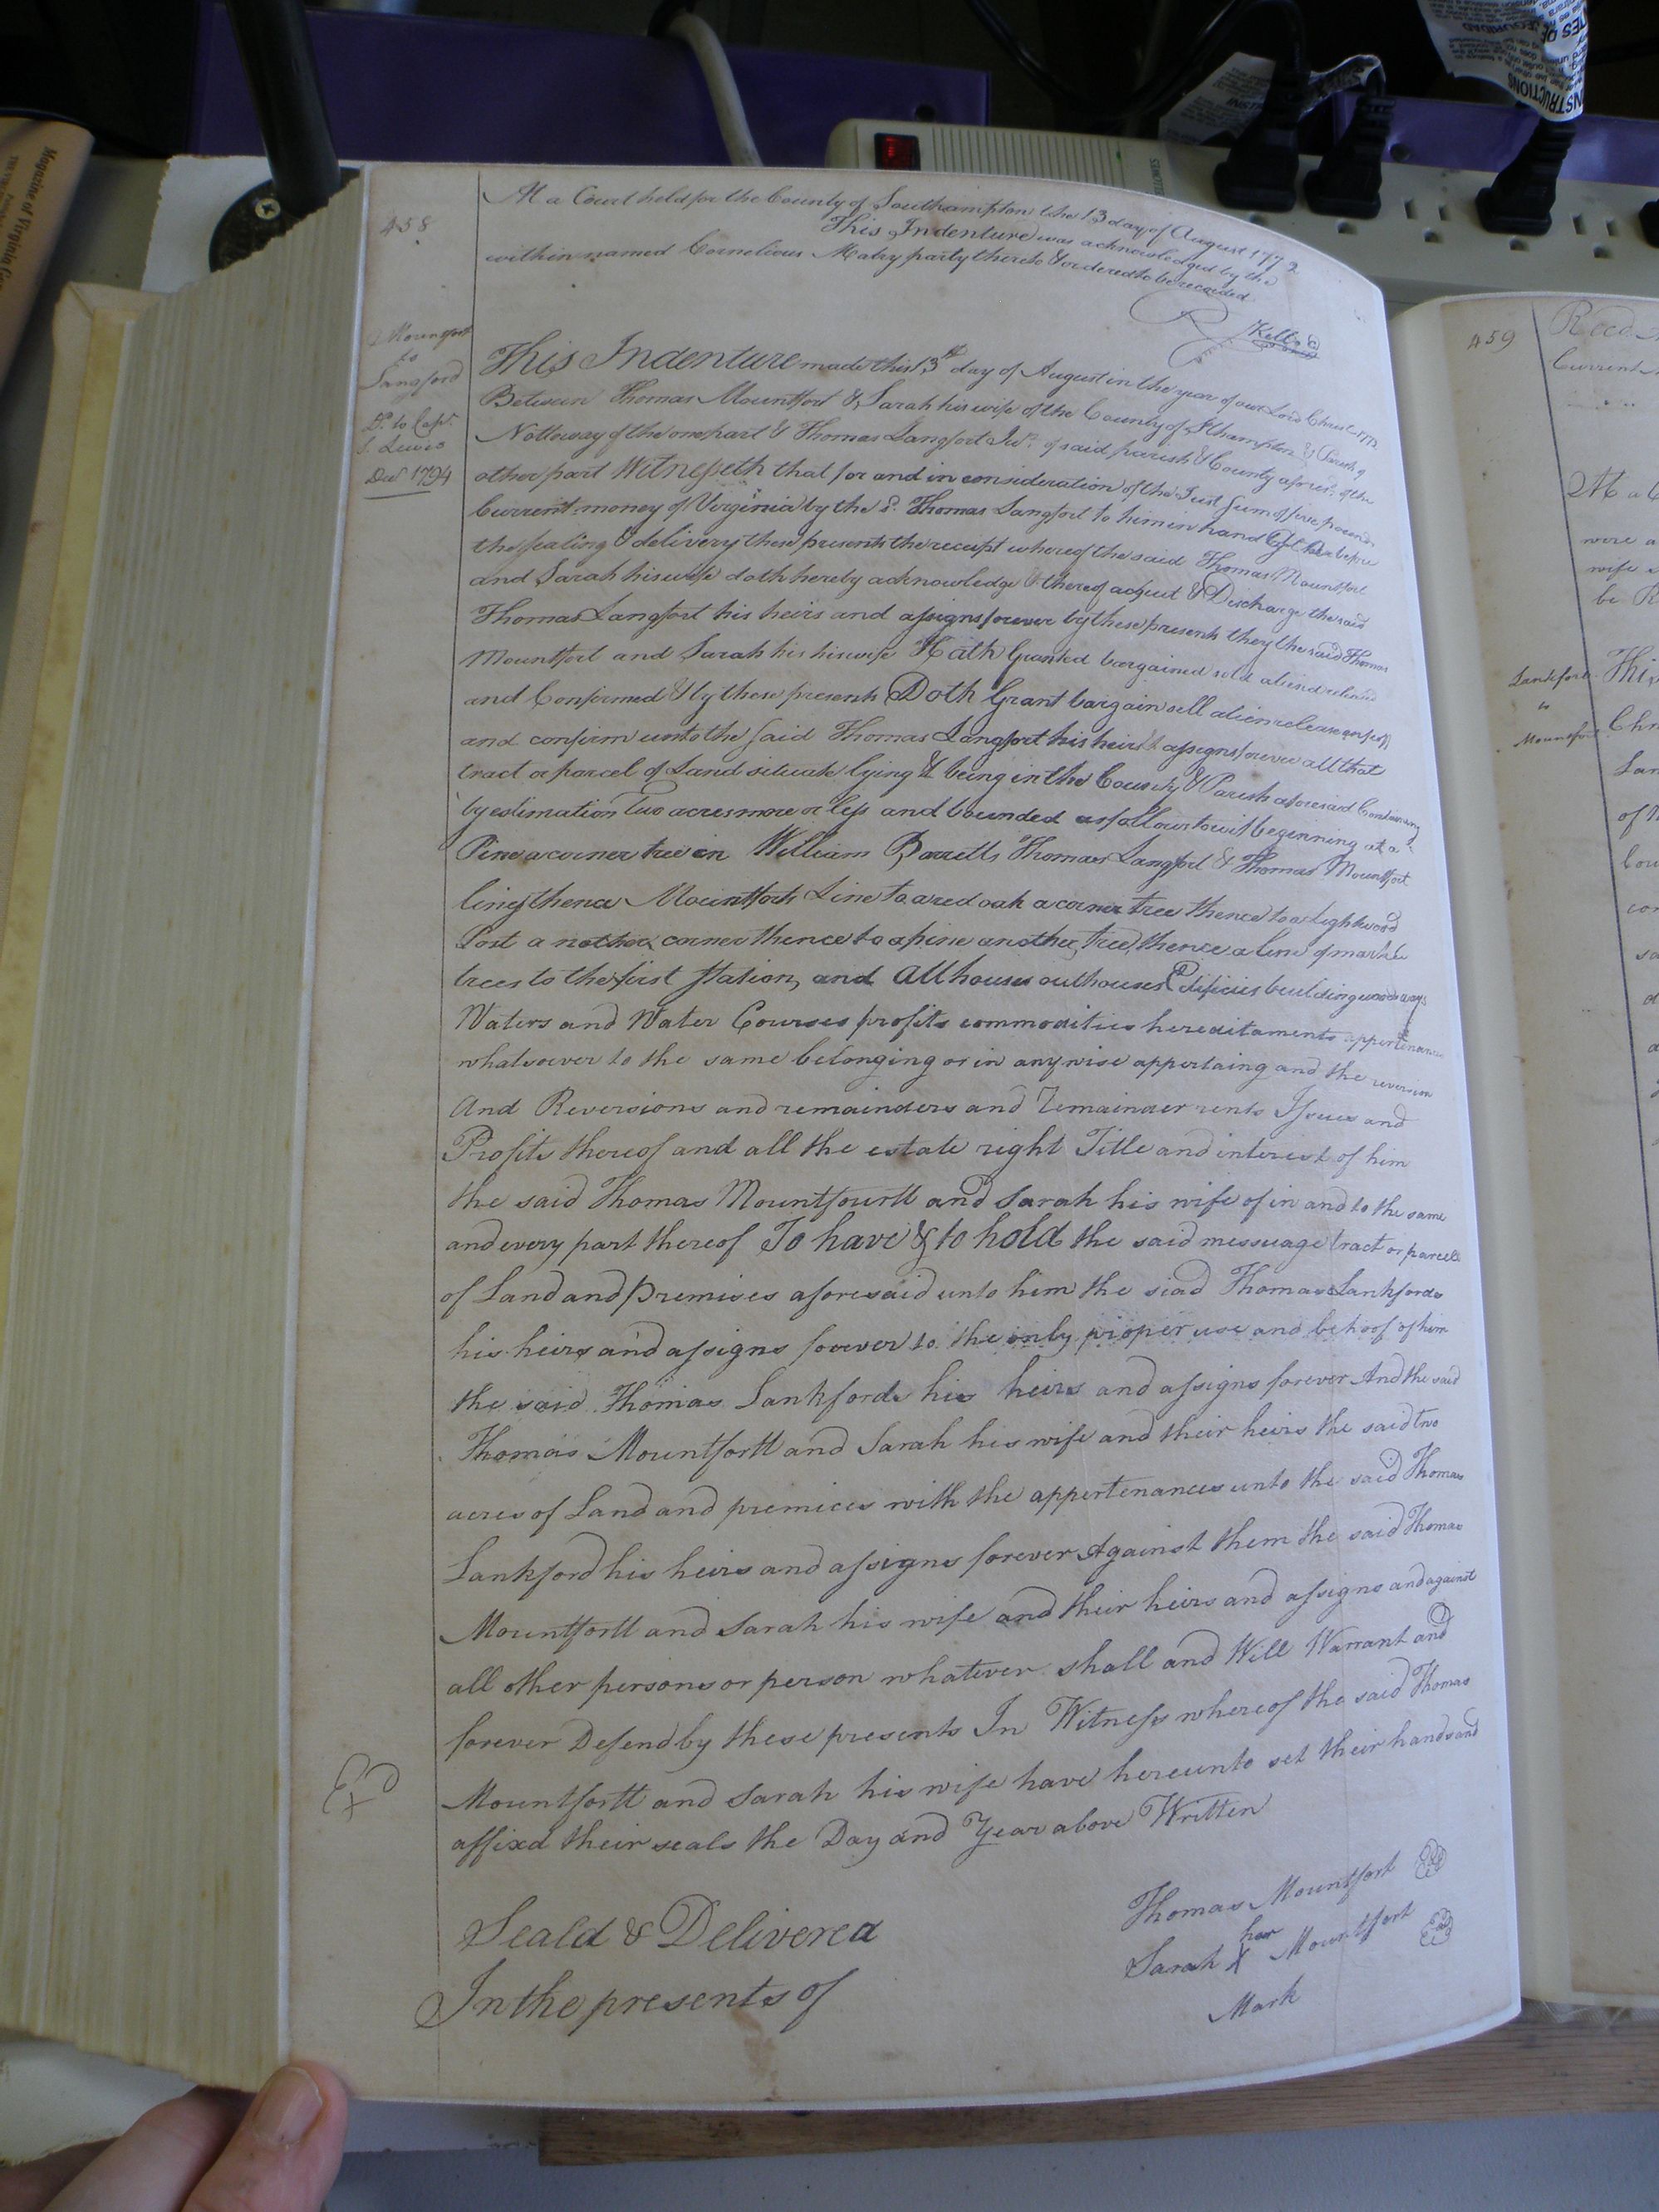 458
At a Court held for the County of Southampton the 13 day of August 1772
This Indenture was acknowledged by the
within named Cornelious Mabry party thereto & ordered to be recorded
Mountfort
to
Langford
D.º to Cap.t
J. Lewis
Decr 1794
This Indenture made this 13th day of August in the year of our Lord Christ 1772
Between Thomas Mountfort & Sarah his wife of the County of Shampton & Parish of
Nottoway of the one part & Thomas Langfort Junr. of said parish & County aforesd. of the
other part Witnesseth that for and in consideration of the Just Sum of five pounds
Current money of Virginia by the sd. Thomas Langfort to him in hand before
the sealing & delivery these presents the receipt whereof the said Thomas Mountfort
and Sarah his wife doth hereby acknowledge & thereof acquit & Discharge the said
Thomas Langfort his heirs and assigns forever by these presents they the said Thomas
Mountfort and Sarah his his wife Hath Granted bargained sold aliend released
and Confirmed & by these presents Doth Grant bargain sell alien release
and confirm unto the said Thomas Langfort his heirs & assigns forever all that
tract or parcel of Land situate lying & being in the County & Parish aforesaid Containing
by estimation Two acres more or less and bounded as follows towit beginning at a
Pine a corner tree in William Barretts Thomas Langfort & Thomas Mountfort
line thence Mountforts Line to a red oak a corner tree thence to a Lightwood
Post a nother corner thence to a pine another tree, thence a line of markd
trees to the first station, and All houses outhouses Edificies building woods ways
Waters and Water Courses profits commodities hereditaments appertenances
whatsoever to the same belonging or in anywise appertaing and the reversion
And Reversions and remainders and Remainder rents Issues and
Profits thereof and all the estate right Title and interest of him
the said Thomas Mountfourtt and Sarah his wife of in and to the same
and every part thereof To have & to hold the said messuage tract or parcell
of Land and Premises aforesaid unto him the siad Thomas Lankforde
his heirs and assigns forever to the only proper use and behoof of him
the said Thomas Lankforde his heirs and assigns forever And the said
Thomas Mountfortt and Sarah his wife and their heirs the said two
acres of Land and premices with the appertenances unto the said Thomas
Lankford his heirs and assigns forever Against them the said Thomas
Mountfortt and Sarah his wife and their heirs and assigns and against
all other persons or person whatever shall and Will Warrant and
forever Defend by these presents In Witness whereof the said Thomas
Mountfortt and Sarah his wife have hereunto set their hands and
affixd their seals the Day and Year above Written
Thomas Mountfort
her
Sarah X Mountfort
Mark
Seald & Delivered
In the presents of
459
Lankford
to
Mountfort
Magazine of Virginia
INSTRUCTIONS
FELLOWES